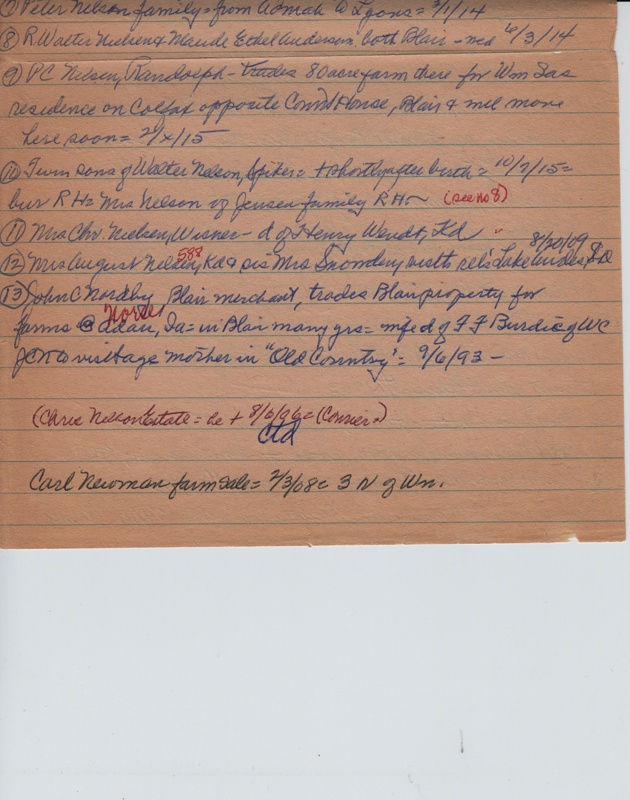 ⑦ Peter Nelson family = from Aomah @ Lyons = 3/1/14
⑧ R Walter Nielsen & Maude Ethel Anderson, both Blair - med 6/3/14
⑨ PC Nelsen, Randolph - trades 80 acre farm there for Wm Sas
residence on Colfax opposite Court House, Blair & will move
here soon = 2/x/15
⑩ Twin sons of Walter Nelson, Spiker = + shortly after birth = 10/7/15 =
bur RH = Mrs Nelson of Jensen family RH (see no 8)
⑪ Mrs Chr Nielsen, Wisner - d of Henry Wendt, Kd "
⑫ Mrs August Nelsen, 588 Kd & sis Mrs visits rels Lake Andes, SD 8/20/09
⑬ John C Nordby, Blair merchant, trades Blair property for
farms @ Adair, Ia = in Blair many yrs = wife d of F F Burdic of WC
JCN to visit age mother in "Old Country" = 9/6/93 -
(Chris Nelson Estate = he + 8/6/06 = (Courier)
Ctd
Carl Newman farm sale = 2/3/08 = 3 N of Wn.